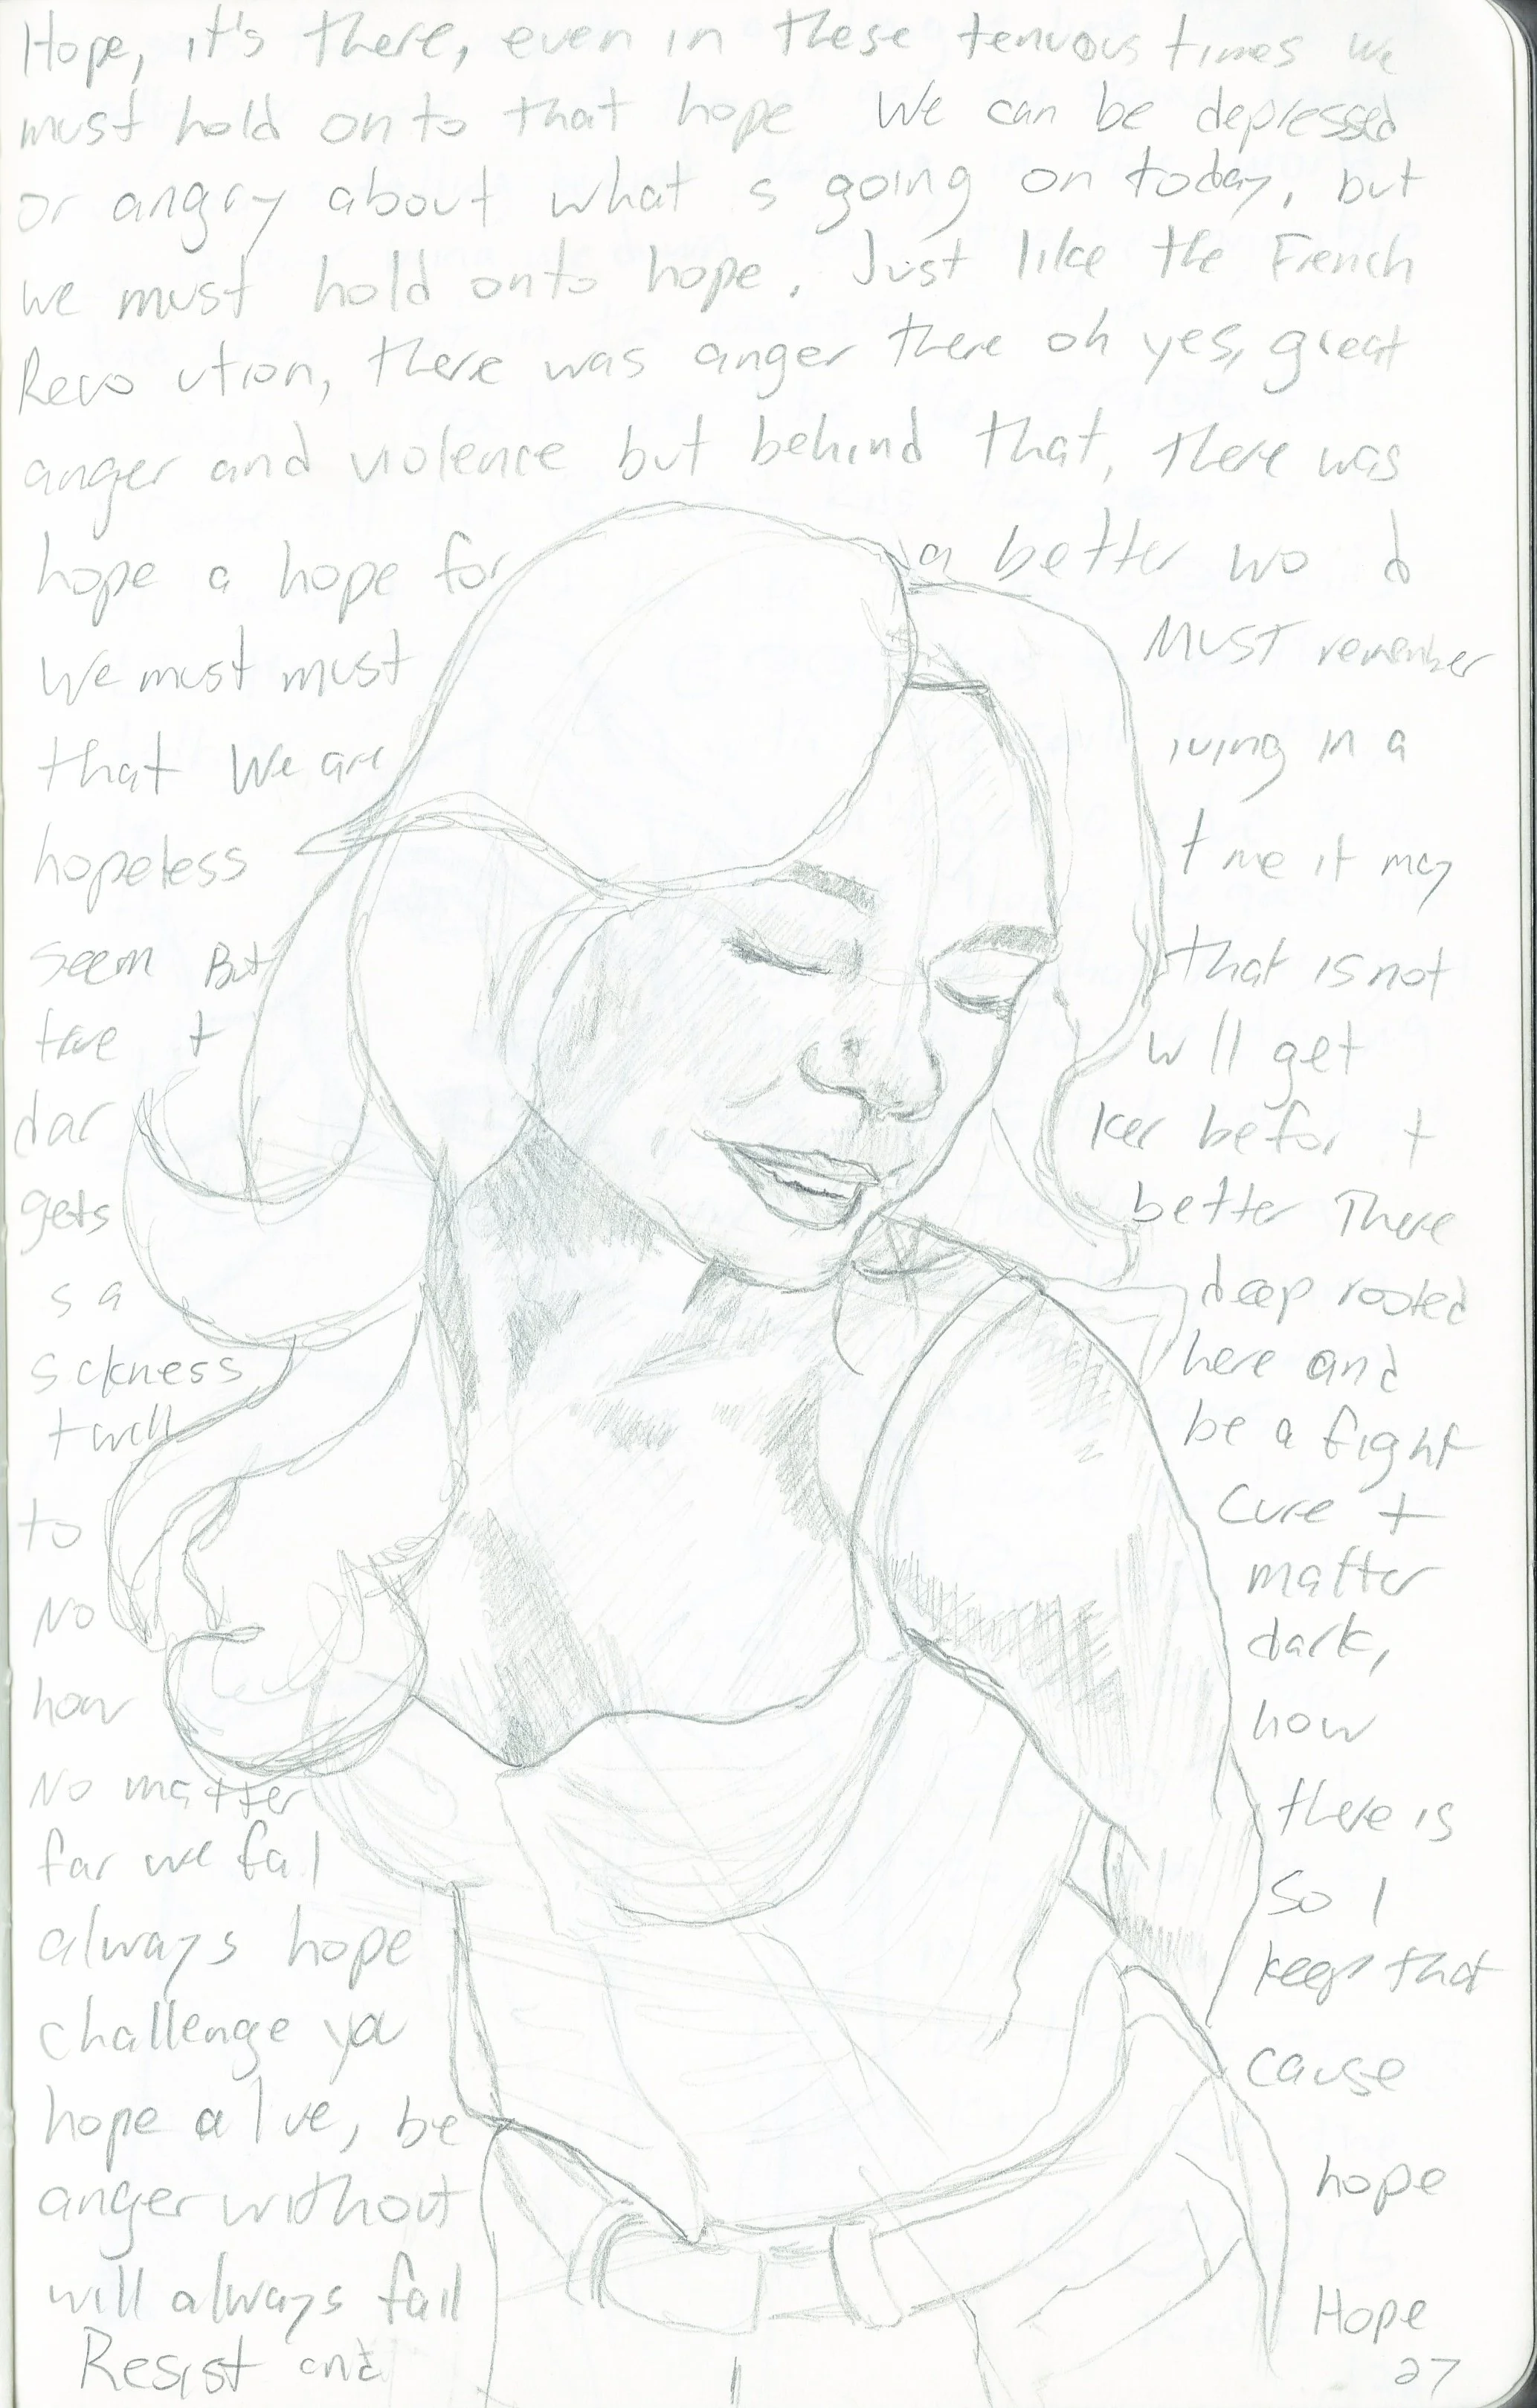 Hope, it's there, even in these tenuous times we
must hold onto that hope We can be depressed
or angry about what s going on today, but
we must hold onto hope. Just like the French
Revo ution, there was anger there oh yes, great
anger and violence but behind that, there was
hope a hope for a better wo d
We must must MUST remember
that We are iving in a
hopeless t me it may
seem But that is not
true t w ll get
dar ker befor t
gets better There
s a deep rooted
s ckness here and
t will be a fight
to cure t
No matter
how dark,
No matter how
far we fal l there is
always hope So I
challenge you keep that
hope al ve, be cause
anger without hope
will always fail Hope
Resist and
27